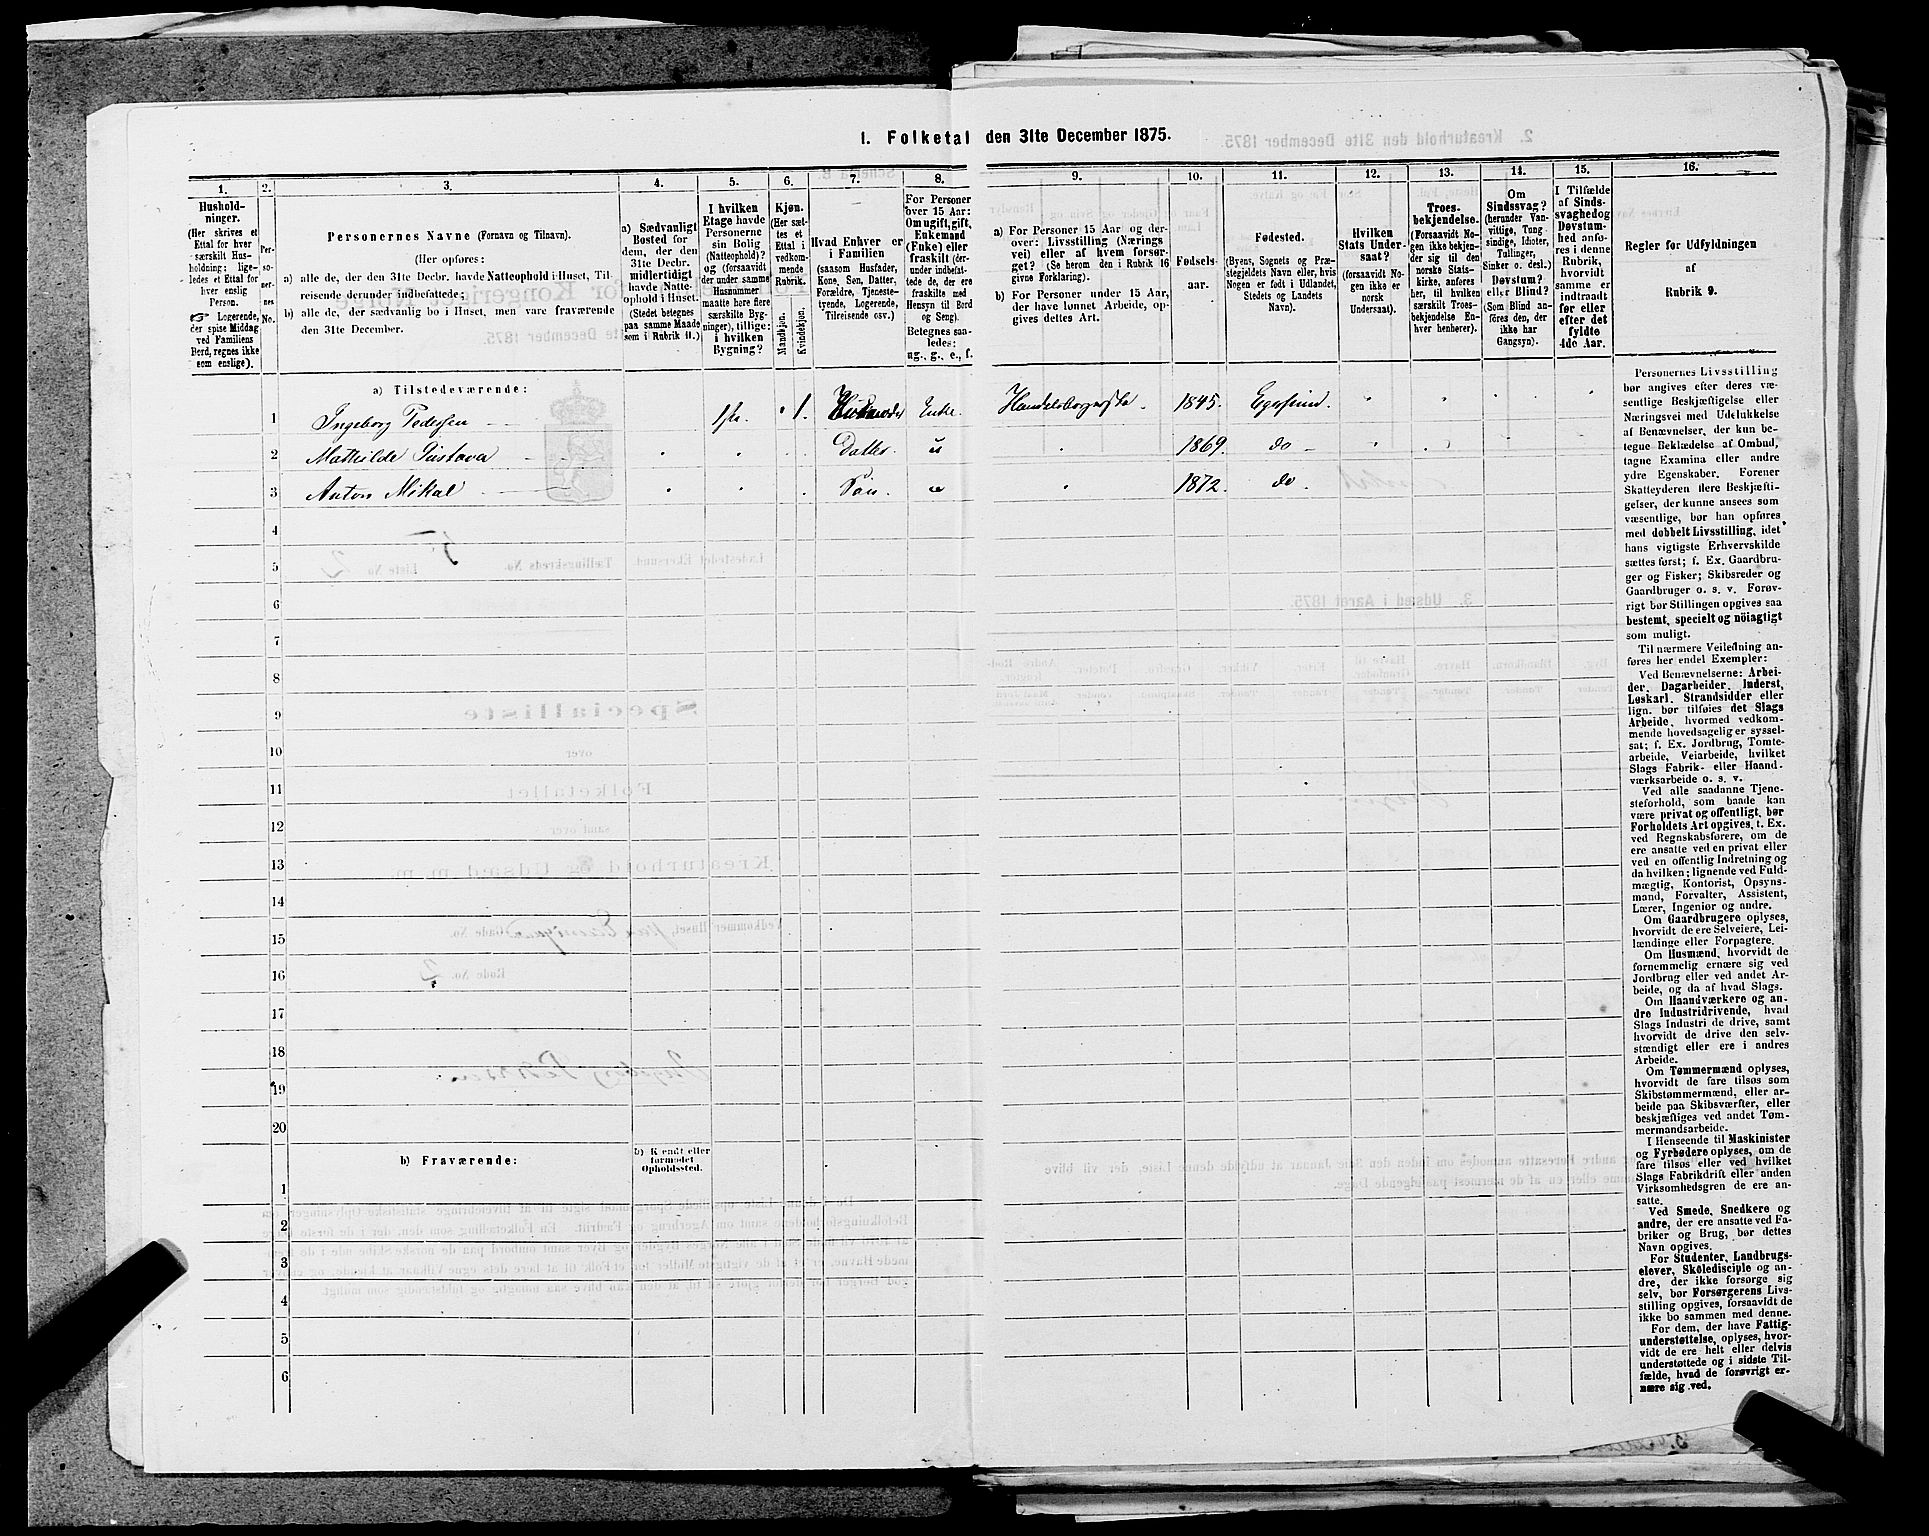 1. Folketal den 31te December 1875.
1. 2. 3. 4. 5. 6. 7. 8. 9. 10. 11. 12. 13. 14. 15. 16.
Hushold-
ninger.
(Her skrives et
Ettal for hver
særskilt Hus-
holdning; lige-
ledes et Ettal for
hver enslig
Person.
☞ Logerende,
der spise Middag
ved Familiens
Bord, regnes ikke
som enslige).
Per-
so-
ner-
nes
No.
Personernes Navne (Fornavn og Tilnavn).
(Her opføres:
a) alle de, der den 31te Decbr. havde Natteophold i Huset, Til-
reisende derunder indbefattede;
b) alle de, der sædvanlig bo i Huset, men vare fraværende
den 31te December.
a) Sædvanligt
Bosted for
dem, der den
31te Decbr.
midlertidigt
havde Natte-
ophold i Huset.
(Stedet betegnes
paa samme Maade
som i Rubrik 11.)
I hvilken
Etage havde
Personerne
sin Bolig
(Natteophold)?
og (forsaavidt
der under samme
Husnummer
maatte høre flere
særskilte Byg-
ninger), tillige:
i hvilken
Bygning?
Kjøn.
(Her sæt-
tes et
Ettal i
vedkom-
mende
Rubrik.
Mandkjøn.
Kvindekjøn.
Hvad Enhver er
i Familien
(saasom Husfader,
Kone, Søn, Datter,
Forældre, Tjeneste-
tyende, Logerende,
Tilreisende osv.)
For Personer
over 15 Aar:
Om ugift, gift,
Enkemand
(Enke) eller
fraskilt (der-
under indbefat-
tede de, der ere
fraskilte med
Hensyn til Bord
og Seng).
Betegnes saa-
ledes:
ug., g., e., f.
a) For Personer 15 Aar og der-
over: Livsstilling (Nærings
vei) eller af hvem forsør-
get? (Se herom den i Rubrik 16
givne Forklaring).
b) For Personer under 15 Aar,
der have lønnet Arbeide, op-
gives dettes Art.
Fødsels-
aar.
Fødested.
(Byens, Sognets og Præ-
stegjeldets Navn eller, hvis
Nogen er født i Udlandet,
Stedets og Landets
Navn).
Hvilken
Stats Under-
saat?
(forsaavidt No-
gen ikke er
norsk
Undersaat).
Troes-
bekjendelse.
(Forsaavidt No-
gen ikke bekjen-
der sig til den
norske Stats-
kirke, anføres
her, til hvilken
særskilt Troes-
bekjendelse En-
hver henhører).
Om
Sindssvag?
(herunder Van-
vittige, Tung-
sindige, Idioter,
Tullinger,
Sinker o. desl.)
Døvstum?
eller Blind?
(Som Blind an-
føres den, der
ikke har
Gangsyn).
I Tilfælde
af Sinds-
svaghedog
Døvstum-
hed anfø-
res i denne
Rubrik,
hvorvidt
samme er
indtraadt
før eller
efter det
fyldte
4de Aar.
Regler før Udfyldningen
af
Rubrik 9.
a) Tilstedeværende:
1 Ingeborg Pedersen 1ste 1. Enke. Handelsborgerske. 1845. Egersund.
2 Mathilde Gustava Datter u 1869. do
3 Anton Mikal Søn u 1872. do
4
5
6
7
8
9
10
11
12
13
14
15
16
17
18
19
20
b) Fraværende:
b) Kjendt eller
formodet
Opholdssted.
1
2
3
4
5
6
Personernes Livsstilling
bør angives efter deres væ-
sentlige Beskjæftigelse eller
Næringsvei med Udelukkelse
af Benævnelser, der kun be-
tegne Beklædelse af Ombud,
tagne Examina eller andre
ydre Egenskaber. Forener
Skatteyderen flere Beskjæfti-
gelser, der kunne ansees som
væsentlige, bør han opføres
med dobbelt Livsstilling, idet
hans vigtigste Erhvervskilde
sættes først; f. Ex. Gaardbru-
ger og Fisker; Skibsreder og
Gaardbruger o. s. v. Forøv-
rigt bør Stillingen opgives saa
bestemt, specielt og nöiagtigt
som muligt.
Til nærmere Veiledning an-
føres her endel Exempler:
Ved Benævnelserne: Arbei-
der, Dagarbeider, Inderst,
Løskarl, Strandsidder eller
lign. bør tilføies det Slags
Arbeide, hvormed vedkom-
mende hovedsagelig er syssel-
sat; f. Ex. Jordbrug, Tomte-
arbeide, Veiarbeide, hvilket
Slags Fabrik- eller Haand-
værksarbeide o. s. v.
Ved alle saadanne Tjene-
steforhold, som baade kan
være privat og offentligt, bør
Forholdets Art opgives, t. Ex.
ved Regnskabsførere, om de
ere ansatte ved en privat eller
ved en offentlig Indretning og
da hvilken; lignende ved Fuld-
mægtig, Kontorist, Opsyns-
mand, Forvalter, Assistent,
Lærer, Ingeniør og andre.
Om Gaardbrugere oplyses,
hvorvidt de ere Selveiere, Lei-
lændinge eller Forpagtere.
Om Husmænd, hvorvidt de
fornemmelig ernære sig ved
Jordbrug eller ved andet Ar-
beide, og da af hvad Slags.
Om Haandværkere og an-
dre Industridrivende, hvad
Slags Industri de drive, samt
hvorvidt de drive den selv-
stændigt eller ere i andres
Arbeide.
Om Tømmermænd oplyses,
hvorvidt de fare tilsøs som
Skibstømmermænd, eller ar-
beide paa Skibsværfter, eller
beskjæftiges ved andet Tøm-
mermandsarbeide.
I Henseende til Maskinister
og Fyrbødere oplyses, om de
fare tilsøs eller ved hvilket
Slags Fabrikdrift eller anden
Virksomhedsgren de ere an-
satte.
Ved Smede, Snedkere og
andre, der ere ansatte ved Fa-
briker og Brug, bør dettes
Navn opgives.
For Studenter, Landbrugs-
elever, Skoledisciple og an-
dre, der ikke forsørge sig
selv, bør Forsørgerens Livs-
stilling opgives, forsaavidt de
ikke bo sammen med denne.
For dem, der have Fattig-
understøttelse, oplyses, hvor-
vidt de ere helt eller delvis
understøttede og i sidste Til-
fælde, hvad de forøvrigt er-
nære sig ved.